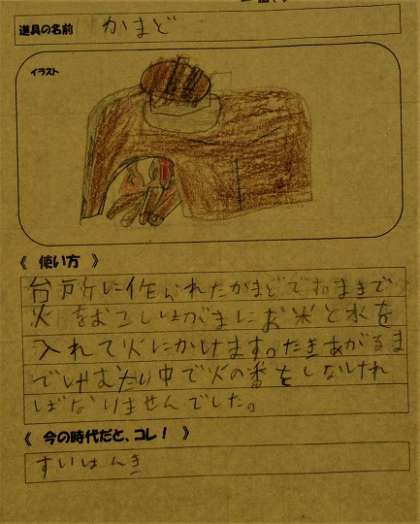 道具の名前 かまど
イラスト
《 使い方 》
台所に作られたかまどでおまきで
火をおこしはがまにお米と水を
入れて火にかけます。たきあがるま
でけむたい中で火の番をしなけれ
ばなりませんでした。
《 今の時代だと、コレ! 》
すいはんき